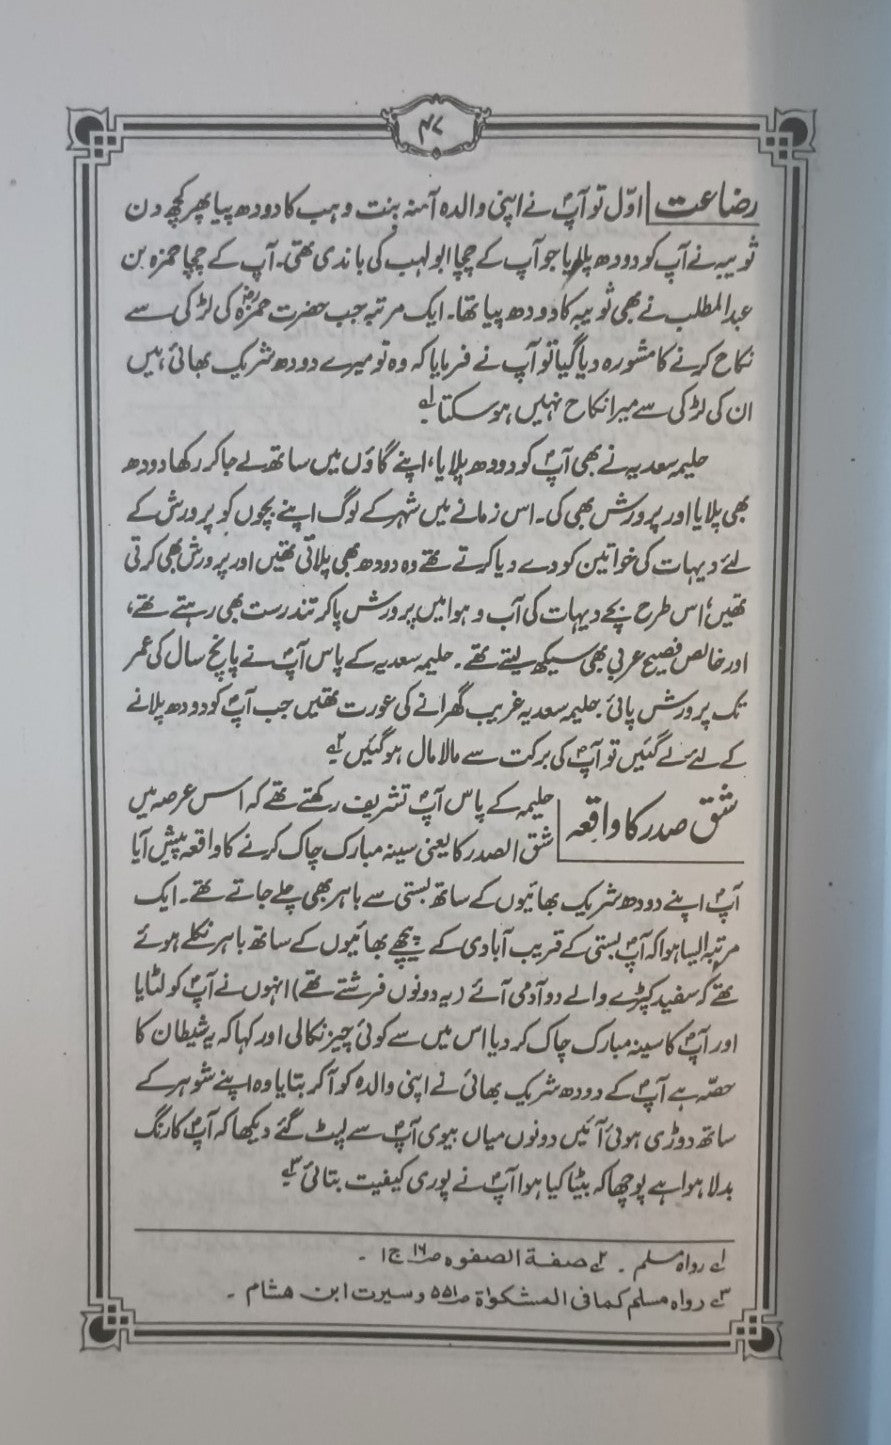 ۴۷
رضاعت اوّل تو آپؐ نے اپنی والدہ آمنہ بنت وہب کا دودھ پیا پھر کچھ دن
ثویبہ نے آپ کو دودھ پلایا جو آپ کے چچا ابولہب کی باندی تھی۔ آپ کے چچا حمزہ بن
عبدالمطلب نے بھی ثویبہ کا دودھ پیا تھا۔ ایک مرتبہ جب حضرت حمزہؓ کی لڑکی سے
نکاح کرنے کا مشورہ دیا گیا تو آپ نے فرمایا کہ وہ تو میرے دودھ شریک بھائی ہیں
ان کی لڑکی سے میرا نکاح نہیں ہوسکتا۱؎
حلیمہ سعدیہ نے بھی آپؐ کو دودھ پلایا، اپنے گاؤں میں ساتھ لے جاکر رکھا دودھ
بھی پلایا اور پرورش بھی کی۔ اس زمانے میں شہر کے لوگ اپنے بچوں کو پرورش کے
لئے دیہات کی خواتین کو دے دیا کرتے تھے وہ دودھ بھی پلاتی تھیں اور پرورش بھی کرتی
تھیں، اس طرح بچے دیہات کی آب و ہوا میں پرورش پاکر تندرست بھی رہتے تھے،
اور خالص فصیح عربی بھی سیکھ لیتے تھے۔ حلیمہ سعدیہ کے پاس آپؐ نے پانچ سال کی عمر
تک پرورش پائی۔ حلیمہ سعدیہ غریب گھرانے کی عورت تھیں جب آپؐ کو دودھ پلانے
کے لئے لے گئیں تو آپؐ کی برکت سے مالا مال ہوگئیں۲؎
شق صدر کا واقعہ حلیمہ کے پاس آپؐ تشریف رکھتے تھے کہ اس عرصہ میں
شق الصدر کا یعنی سینہ مبارک چاک کرنے کا واقعہ پیش آیا
آپؐ اپنے دودھ شریک بھائیوں کے ساتھ بستی سے باہر بھی چلے جاتے تھے۔ ایک
مرتبہ ایسا ہوا کہ آپؐ بستی کے قریب آبادی کے پیچھے بھائیوں کے ساتھ باہر نکلے ہوئے
تھے کہ سفید کپڑے والے دو آدمی آئے (یہ دونوں فرشتے تھے) انہوں نے آپؐ کو لٹایا
اور آپؐ کا سینہ مبارک چاک کر دیا اس میں سے کوئی چیز نکالی اور کہا کہ یہ شیطان کا
حصّہ ہے آپؐ کے دودھ شریک بھائی نے اپنی والدہ کو آکر بتایا وہ اپنے شوہر کے
ساتھ دوڑی ہوئی آئیں دونوں میاں بیوی آپؐ سے لپٹ گئے دیکھا کہ آپؐ کا رنگ
بدلا ہوا ہے پوچھا کہ بیٹا کیا ہوا آپؐ نے پوری کیفیت بتائی۳؎
۱؎ رواہ مسلم۔ ۲؎ صفة الصفوہ ص۱۶ ج۱۔
۳؎ رواہ مسلم کما فی المشکواة ص۵۵۱ و سیرت ابن هشام۔